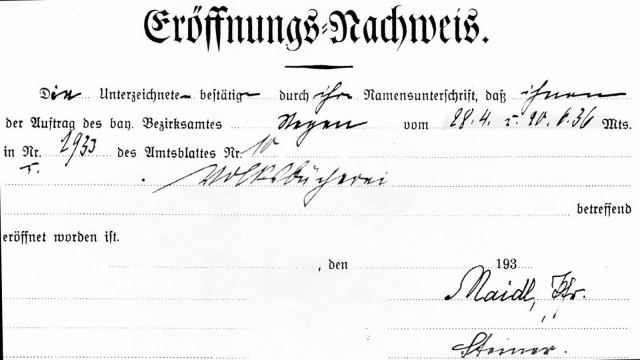 Eröffnungs-Nachweis.
Die Unterzeichnete bestätigen durch ihre Namensunterschrift, daß ihnen
der Auftrag des bay. Bezirksamtes Regen vom 28.4. u. 20.6.36 Mts.
in Nr. 2933 des Amtsblattes Nr. 10
Volksbücherei
betreffend
eröffnet worden ist.
, den 193
Maidl, Pfr.
Steiner.